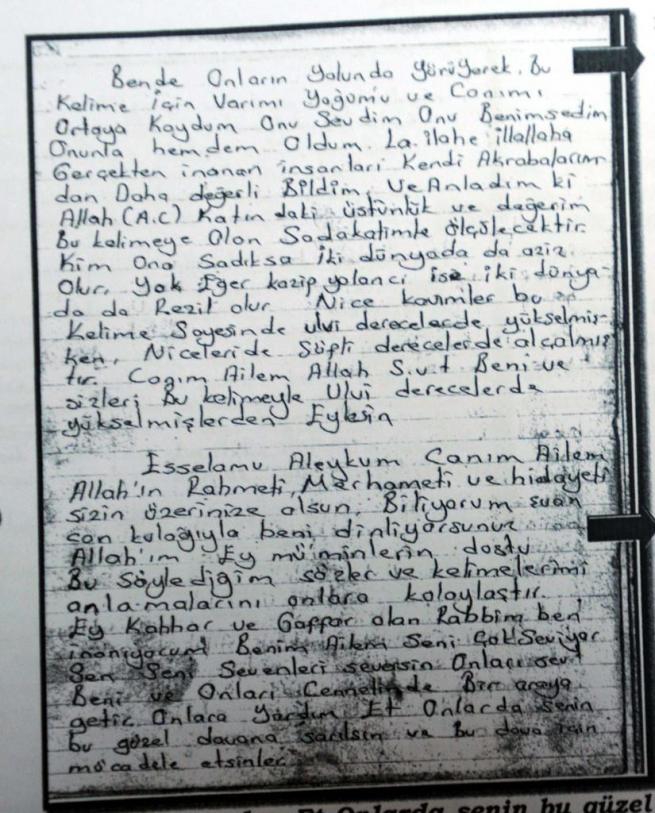 Bende Onların Yolunda Yürüyerek, Bu
Kelime için Varımı Yoğumu ve Canımı
Ortaya Koydum Onu Sevdim Onu Benimsedim
Onunla hemdem Oldum. La ilahe illallaha
Gerçekten inanan insanları Kendi Akrabalarım
dan Daha değerli Bildim, Ve Anladım ki
Allah (A.C) Katındaki üstünlük ve değerim
Bu kelimeye Olan Sadakatimle ölçülecektir.
Kim Ona Sadıksa iki dünyada da aziz
Olur, Yok Eğer kazip yalancı ise iki dünya-
da da Rezil olur Nice kavimler bu
Kelime Sayesinde ulvi derecelerde yükselmiş-
ken, Niceleride Süfli derecelerde alçalmış
tır. Canım Ailem Allah S.v.t Beni ve
sizleri Bu kelimeyle Ulvi derecelerde
yükselmişlerden Eylesin
Esselamu Aleykum Canım Ailem
Allah'ın Rahmeti, Merhameti ve hidayeti
sizin üzerinize olsun. Biliyorum şuan
can kulağıyla beni dinliyorsunuz
Allah'ım Ey mü'minlerin dostu
Bu söylediğim sözler ve kelimelerimi
anlamalarını onlara kolaylaştır.
Ey Kahhar ve Gaffar olan Rabbim ben
inanıyorum Benim Ailem Seni Çok Seviyor
Sen Seni Sevenleri seversin Onları sev
Beni ve Onları Cennetinde Bir araya
getir Onlara Yardım Et Onlarda senin
bu güzel davana sarılsın ve bu dava için
mücadele etsinler
Et Onlarda senin bu güzel